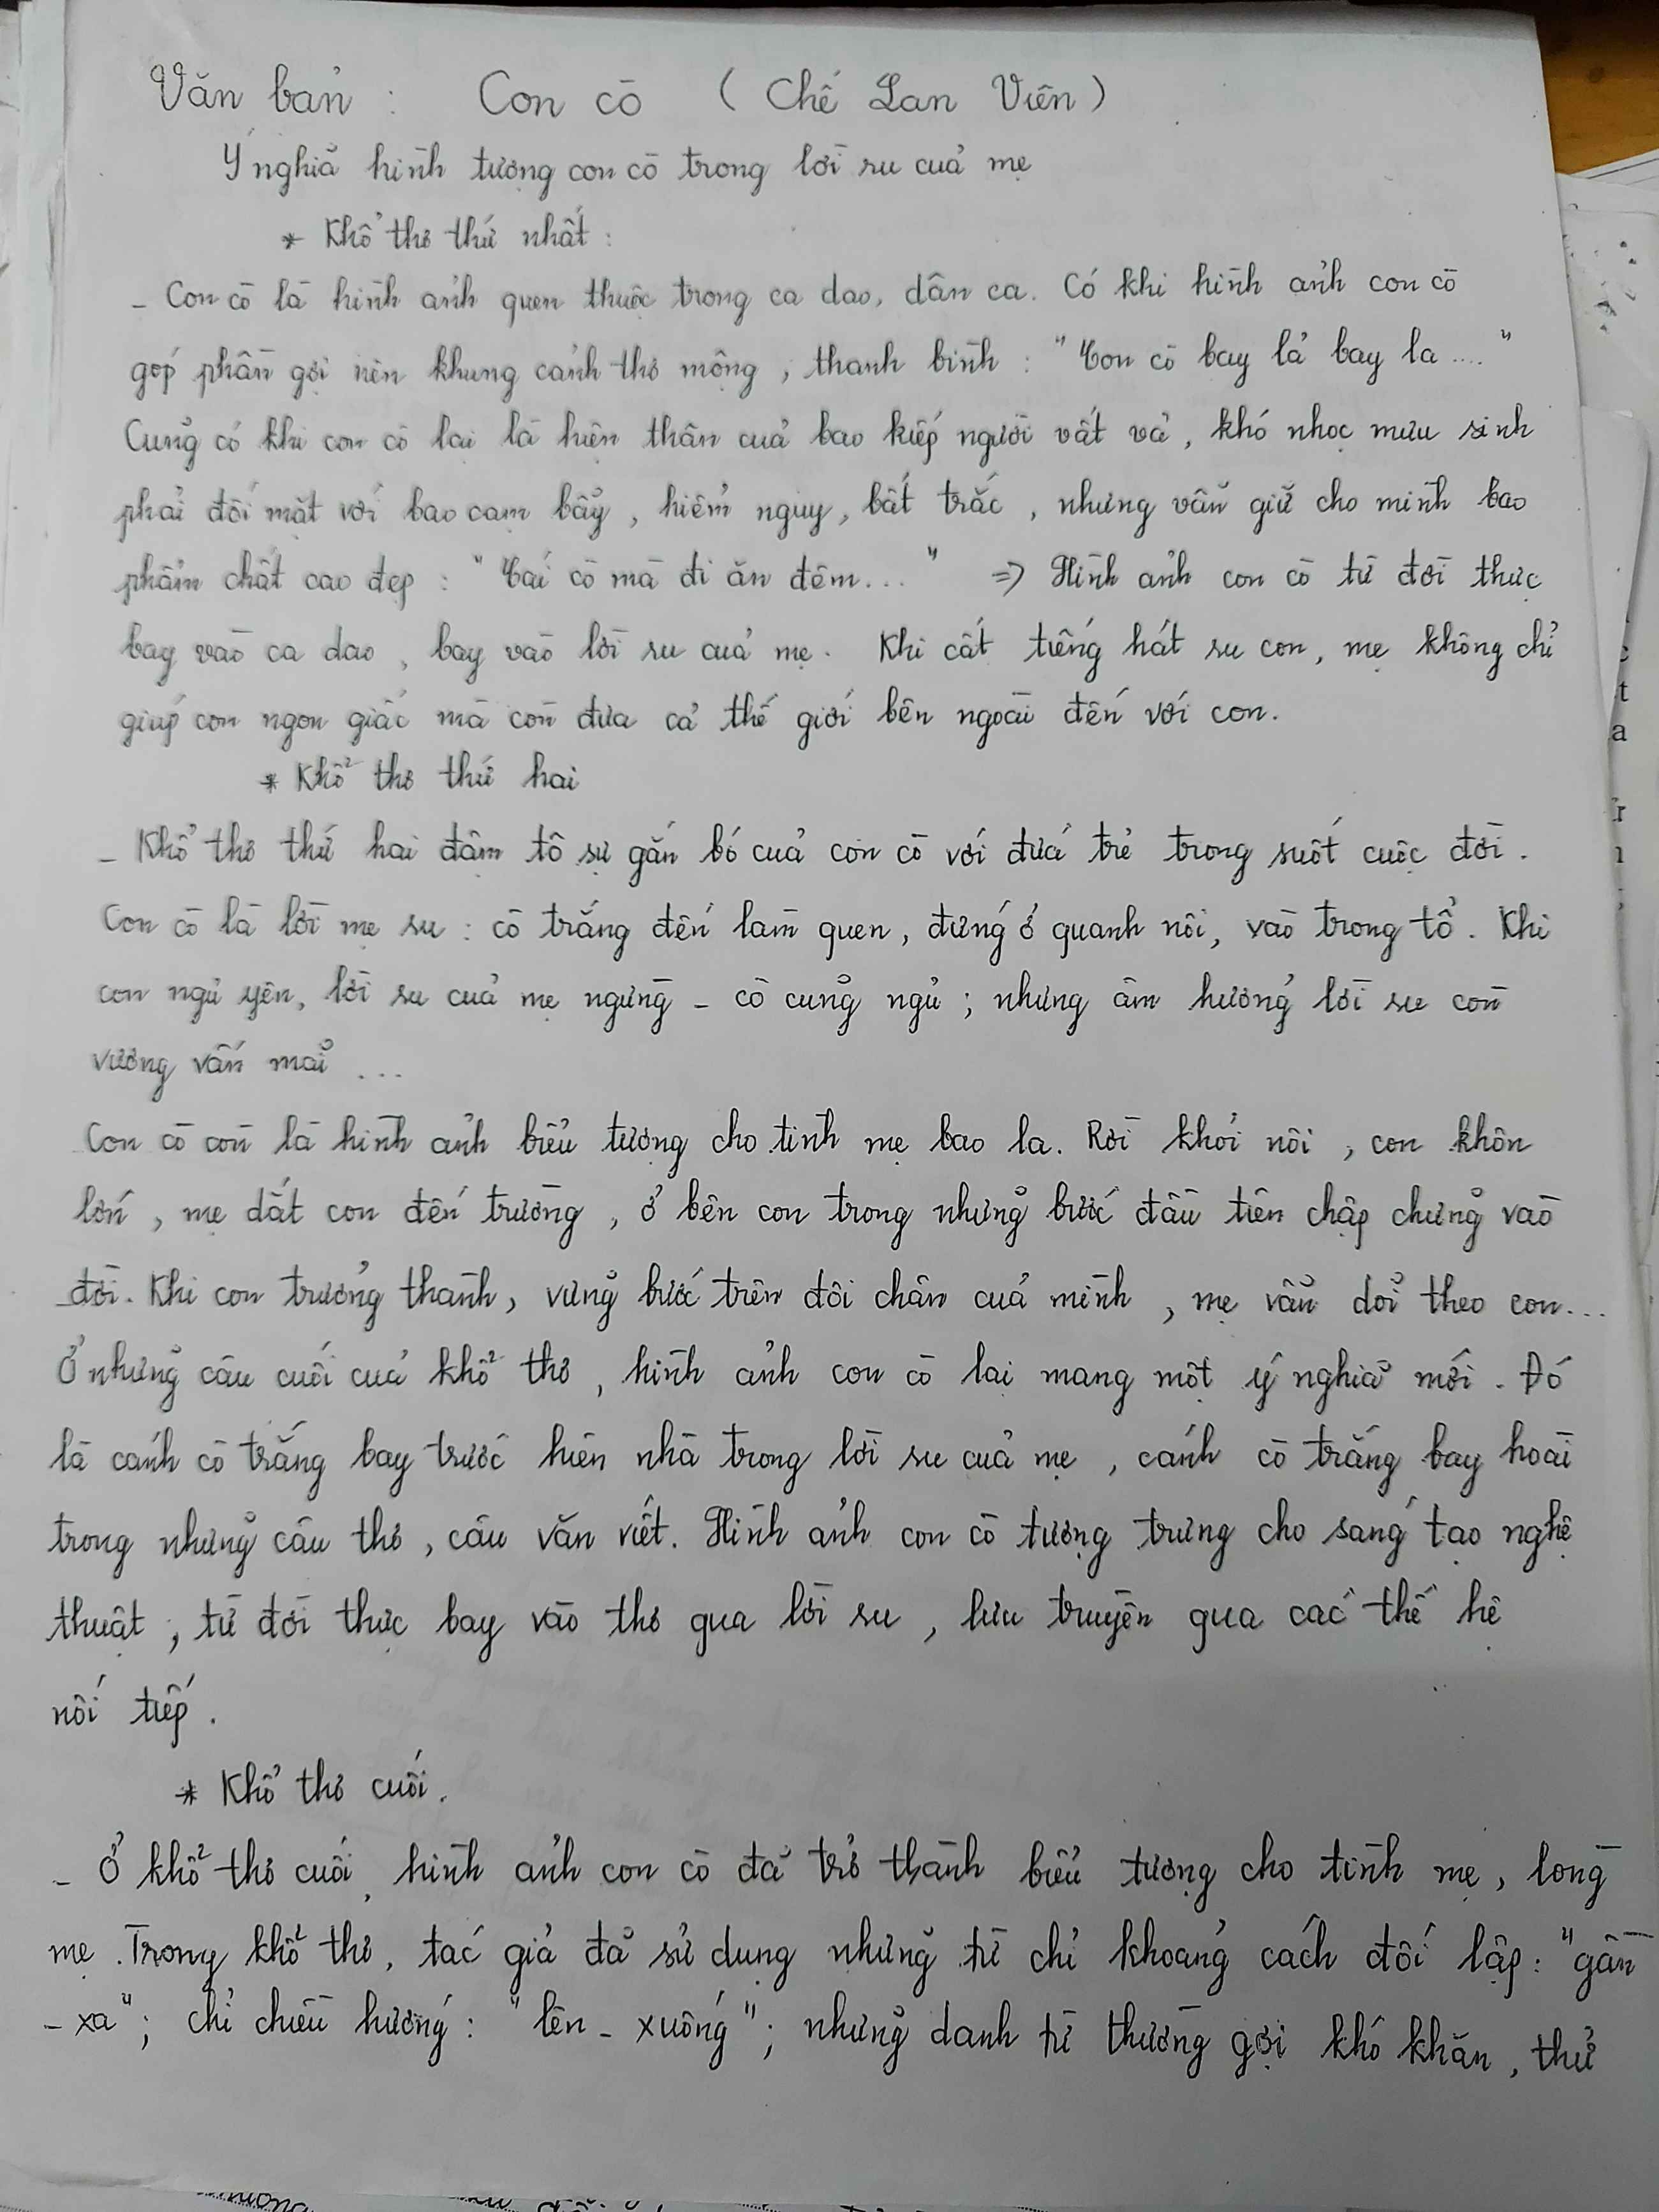 Văn bản : Con cò ( Chế Lan Viên )
Ý nghĩa hình tượng con cò trong lời ru của mẹ
* Khổ thơ thứ nhất :
- Con cò là hình ảnh quen thuộc trong ca dao, dân ca. Có khi hình ảnh con cò
góp phần gợi nên khung cảnh thơ mộng , thanh bình : " Con cò bay lả bay la .... "
Cũng có khi con cò lại là hiện thân của bao kiếp người vất vả , khó nhọc mưu sinh
phải đối mặt với bao cạm bẫy , hiểm nguy , bất trắc , nhưng vẫn giữ cho mình bao
phẩm chất cao đẹp : " Cái cò mà đi ăn đêm... " => Hình ảnh con cò từ đời thực
bay vào ca dao , bay vào lời ru của mẹ . Khi cất tiếng hát ru con , mẹ không chỉ
giúp con ngon giấc mà còn đưa cả thế giới bên ngoài đến với con .
* Khổ thơ thứ hai
- Khổ thơ thứ hai đậm tô sự gắn bó của con cò với đứa trẻ trong suốt cuộc đời .
Con cò là lời mẹ ru : cò trắng đến làm quen , đứng ở quanh nôi , vào trong tổ . Khi
con ngủ yên , lời ru của mẹ ngừng - cò cũng ngủ ; nhưng âm hưởng lời ru còn
vương vấn mãi ...
Con cò còn là hình ảnh biểu tượng cho tình mẹ bao la . Rời khỏi nôi , con khôn
lớn , mẹ dắt con đến trường , ở bên con trong những bước đầu tiên chập chững vào
đời . Khi con trưởng thành , vững bước trên đôi chân của mình , mẹ vẫn dõi theo con ...
Ở những câu cuối của khổ thơ , hình ảnh con cò lại mang một ý nghĩa mới . Đó
là cánh cò trắng bay trước hiên nhà trong lời ru của mẹ , cánh cò trắng bay hoài
trong những câu thơ , câu văn viết . Hình ảnh con cò tượng trưng cho sáng tạo nghệ
thuật , từ đời thực bay vào thơ qua lời ru , lưu truyền qua các thế hệ
nối tiếp .
* Khổ thơ cuối .
- Ở khổ thơ cuối , hình ảnh con cò đã trở thành biểu tượng cho tình mẹ , lòng
mẹ . Trong khổ thơ , tác giả đã sử dụng những từ chỉ khoảng cách đối lập : "gần
- xa" ; chỉ chiều hướng : " lên - xuống " ; những danh từ thường gợi khó khăn , thử